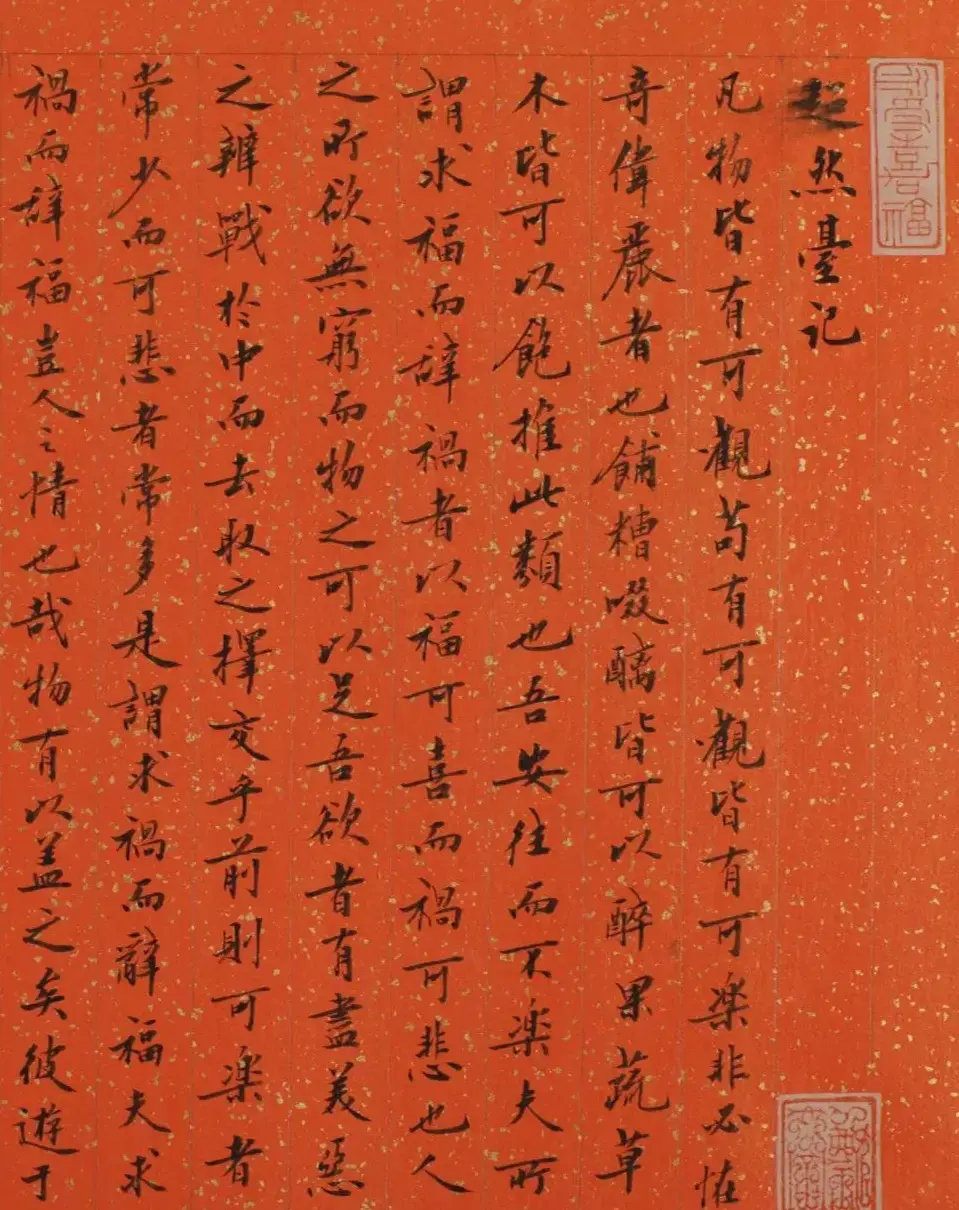 超然臺记
凡物皆有可觀苟有可觀皆有可楽非必怪
奇偉麗者也餔糟啜醨皆可以醉果蔬草
木皆可以飽推此類也吾安往而不楽夫所
謂求福而辞禍者以福可喜而禍可悲也人
之所欲無窮而物之可以足吾欲者有盡美惡
之辨戰於中而去取之擇交乎前則可楽者
常少而可悲者常多是謂求禍而辭福夫求
禍而辞福豈人之情也哉物有以盖之矣彼遊于